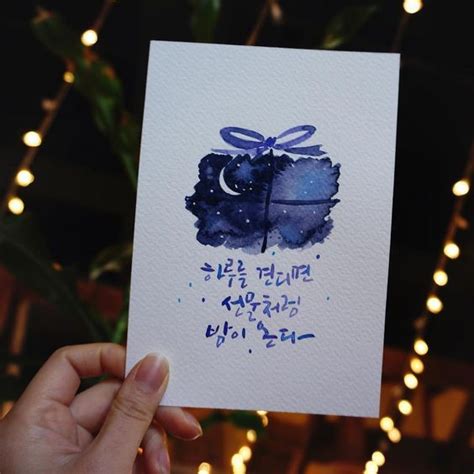 하루를 견디면
선물처럼
밤이 온다